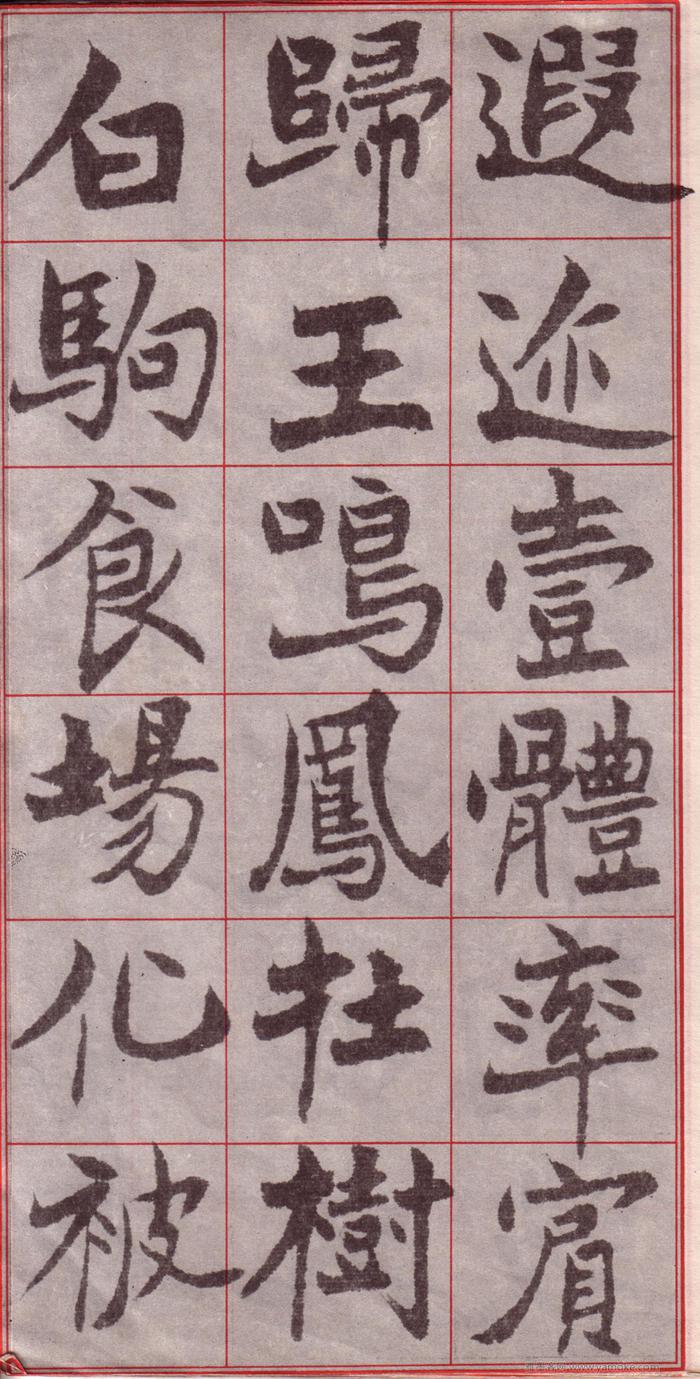 遐迩壹體率賓
歸王鳴鳳在樹
白駒食場化被
www.yamoke.com